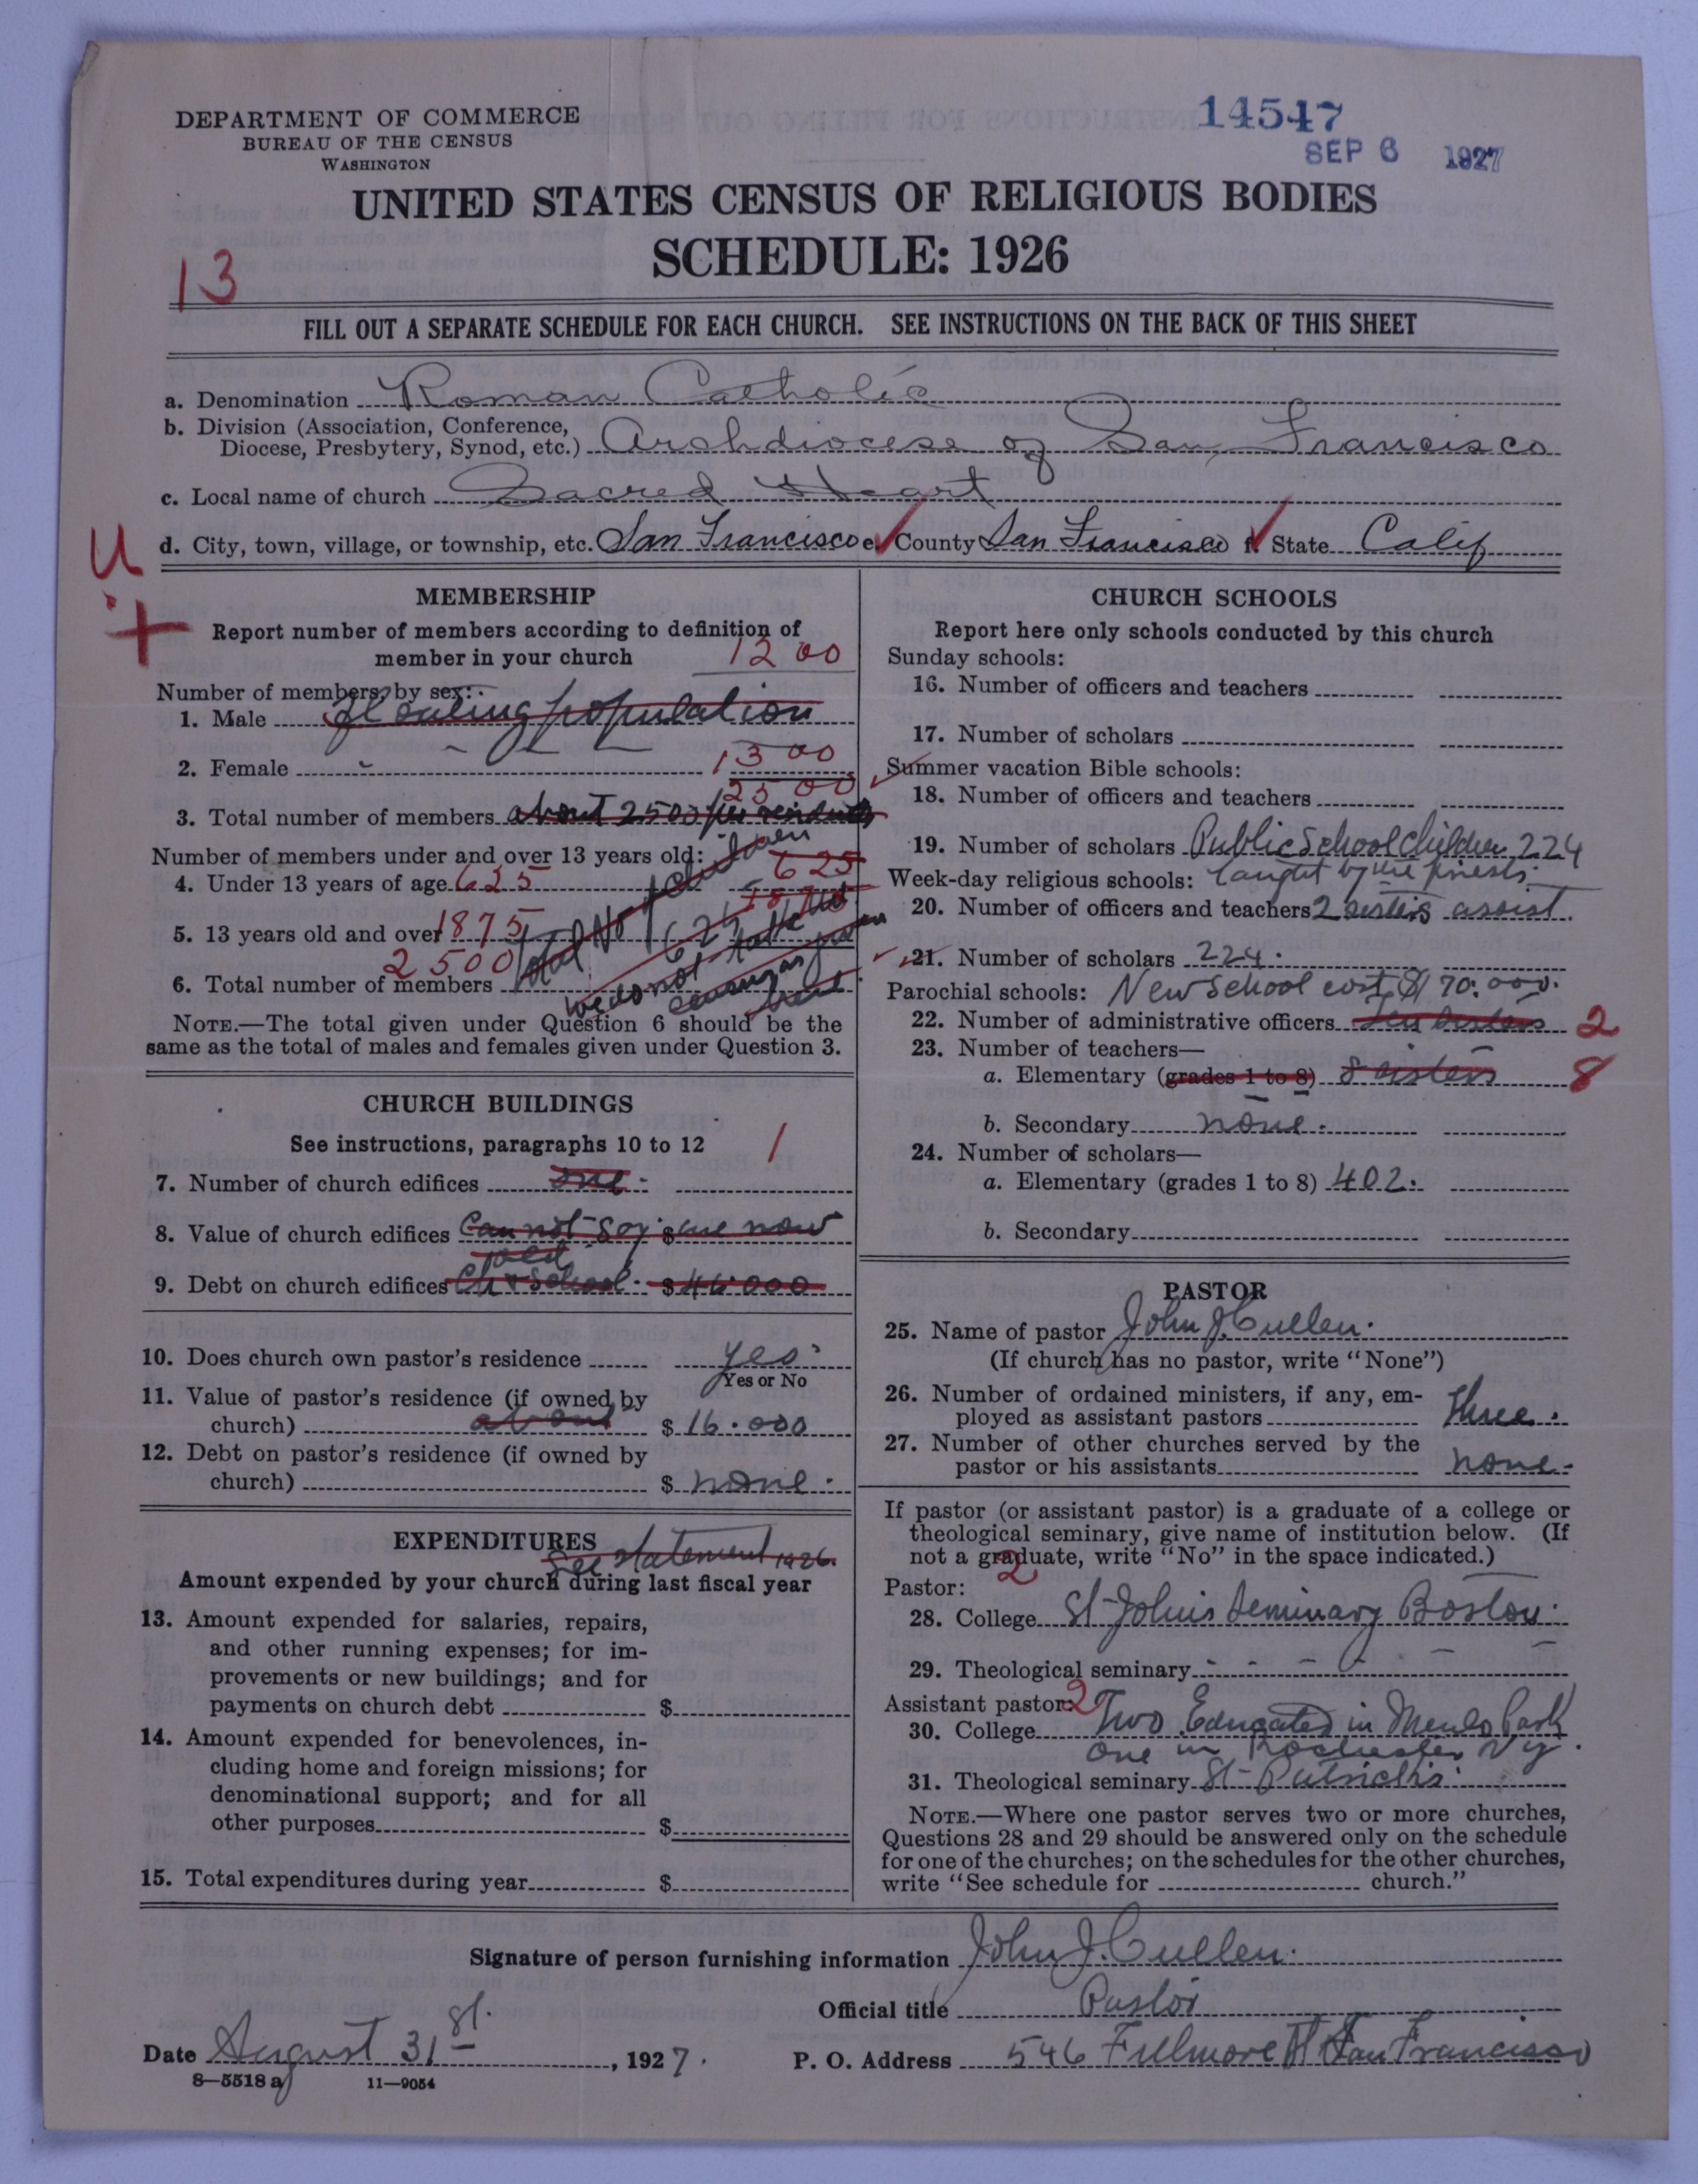 DEPARTMENT OF COMMERCE
BUREAU OF THE CENSUS
WASHINGTON
14547
SEP 6 1927
UNITED STATES CENSUS OF RELIGIOUS BODIES
SCHEDULE: 1926
13
FILL OUT A SEPARATE SCHEDULE FOR EACH CHURCH. SEE INSTRUCTIONS ON THE BACK OF THIS SHEET
a. Denomination Roman Catholic
b. Division (Association, Conference,
Diocese, Presbytery, Synod, etc.) Archdiocese of San Francisco
c. Local name of church Sacred Heart
U
d. City, town, village, or township, etc. San Francisco e. County San Francisco f. State Calif
+
MEMBERSHIP
Report number of members according to definition of
member in your church 1200
Number of members, by sex:
1. Male floating population
2. Female 1300
2500
3. Total number of members about 2500
Number of members under and over 13 years old:
4. Under 13 years of age 625 625
1875
5. 13 years old and over 1875
2500
6. Total number of members Total No children 625
we do not take the census
NOTE.—The total given under Question 6 should be the
same as the total of males and females given under Question 3.
CHURCH BUILDINGS
See instructions, paragraphs 10 to 12 1
7. Number of church edifices one
8. Value of church edifices Cannot say $ are now
old
9. Debt on church edifices Ch & School $ 46.000
10. Does church own pastor's residence yes
Yes or No
11. Value of pastor's residence (if owned by
church) about $ 16.000
12. Debt on pastor's residence (if owned by
church) $ none.
EXPENDITURES
See statement 1926.
Amount expended by your church during last fiscal year
13. Amount expended for salaries, repairs,
and other running expenses; for im-
provements or new buildings; and for
payments on church debt $
14. Amount expended for benevolences, in-
cluding home and foreign missions; for
denominational support; and for all
other purposes $
15. Total expenditures during year $
CHURCH SCHOOLS
Report here only schools conducted by this church
Sunday schools:
16. Number of officers and teachers
17. Number of scholars
Summer vacation Bible schools:
18. Number of officers and teachers
19. Number of scholars Public School Children 224
Week-day religious schools: taught by the priests.
20. Number of officers and teachers 2 sisters assist.
21. Number of scholars 224.
Parochial schools: New School cost $170.000.
22. Number of administrative officers 2
23. Number of teachers—
a. Elementary (grades 1 to 8) 8 sisters 8
b. Secondary none.
24. Number of scholars—
a. Elementary (grades 1 to 8) 402.
b. Secondary
PASTOR
25. Name of pastor John J. Cullen.
(If church has no pastor, write "None")
26. Number of ordained ministers, if any, em-
ployed as assistant pastors three.
27. Number of other churches served by the
pastor or his assistants none.
If pastor (or assistant pastor) is a graduate of a college or
theological seminary, give name of institution below. (If
not a graduate, write "No" in the space indicated.)
2
Pastor:
28. College St-Johns Seminary Boston.
29. Theological seminary
Assistant pastor: 2
30. College Two Educated in Menlo Park
one in Rochester Ny.
31. Theological seminary St-Patrick's
NOTE.—Where one pastor serves two or more churches,
Questions 28 and 29 should be answered only on the schedule
for one of the churches; on the schedules for the other churches,
write "See schedule for church."
Signature of person furnishing information John J. Cullen.
Official title Pastor
Date August 31st., 1927.
P. O. Address 546 Fillmore St San Francisco
8—5518 a 11—9054